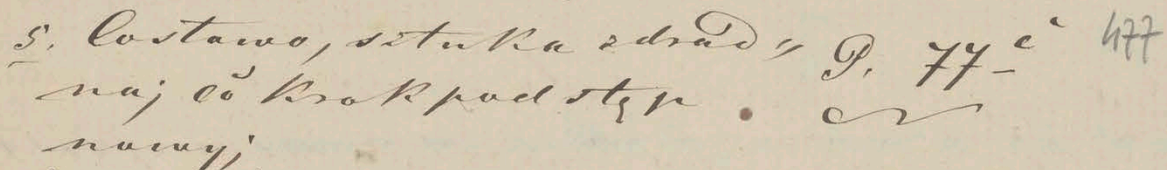 5. Costawo, sztuka zdrad„ P. 77 č 477
naj cŏ krok podstęp .
nowy;